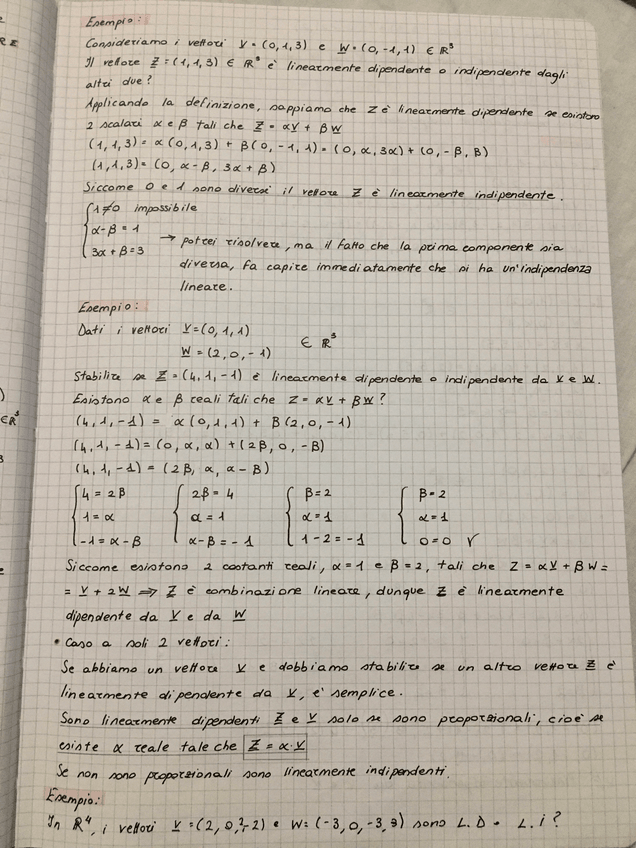 Esempio:
Consideriamo i vettori V = (0,1,3) e W = (0,-1,1) ∈ ℝ³
Il vettore Z = (1,1,3) ∈ ℝ³ è linearmente dipendente o indipendente dagli
altri due?
Applicando la definizione, sappiamo che Z è linearmente dipendente se esistono
2 scalari α e β tali che Z = αV + βW
(1,1,3) = α (0,1,3) + β(0,-1,1) = (0, α, 3α) + (0, -β, β)
(1,1,3) = (0, α-β, 3α + β)
Siccome 0 e 1 sono diversi il vettore Z è linearmente indipendente.
1≠0 impossibile
α-β = 1
3α + β = 3 → potrei risolvere, ma il fatto che la prima componente sia
diversa, fa capire immediatamente che si ha un'indipendenza
lineare.
Esempio:
Dati i vettori V = (0,1,1)
W = (2,0,-1) ∈ ℝ³
Stabilire se Z = (4,1,-1) è linearmente dipendente o indipendente da V e W.
Esistono α e β reali tali che Z = αV + βW?
(4,1,-1) = α(0,1,1) + β(2,0,-1)
(4,1,-1) = (0, α, α) + (2β, 0, -β)
(4,1,-1) = (2β, α, α-β)
4 = 2β 2β = 4 β = 2 β = 2
1 = α α = 1 α = 1 α = 1
-1 = α-β α-β = -1 1-2 = -1 0 = 0 √
Siccome esistono 2 costanti reali, α = 1 e β = 2, tali che Z = αV + βW =
= V + 2W ⟹ Z è combinazione lineare, dunque Z è linearmente
dipendente da V e da W
• Caso a soli 2 vettori:
Se abbiamo un vettore V e dobbiamo stabilire se un altro vettore Z è
linearmente dipendente da V, e' semplice.
Sono linearmente dipendenti Z e V solo se sono proporzionali, cioè se
esiste α reale tale che Z = α·V
Se non sono proporzionali sono linearmente indipendenti.
Esempio:
In ℝ⁴, i vettori V = (2,0,2,-2) e W = (-3,0,-3,3) sono L.D o L.i?